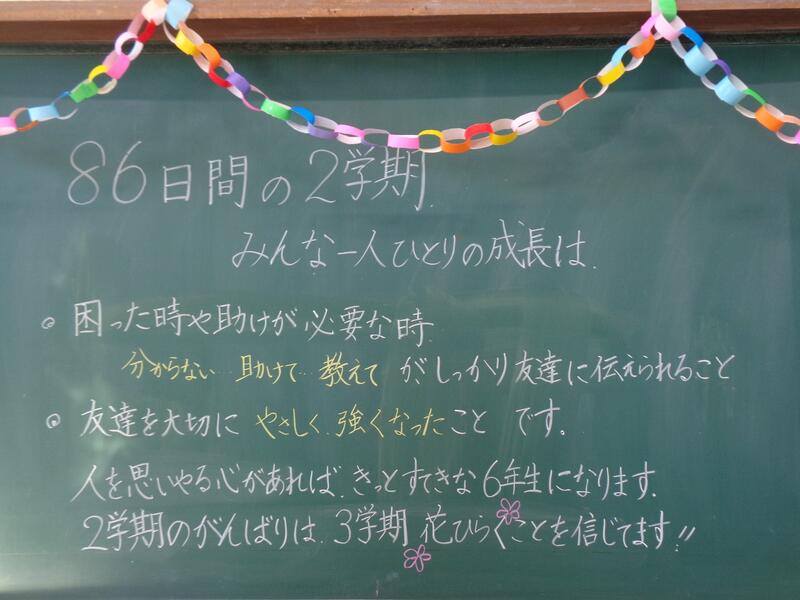 86日間の2学期
みんな一人ひとりの成長は、
◦ 困った時や助けが必要な時、
分からない…助けて…教えて がしっかり友達に伝えられること
◦ 友達を大切に やさしく、強くなったこと です。
人を思いやる心があれば、きっとすてきな6年生になります。
2学期のがんばりは、3学期 花ひらくことを信じてます!!